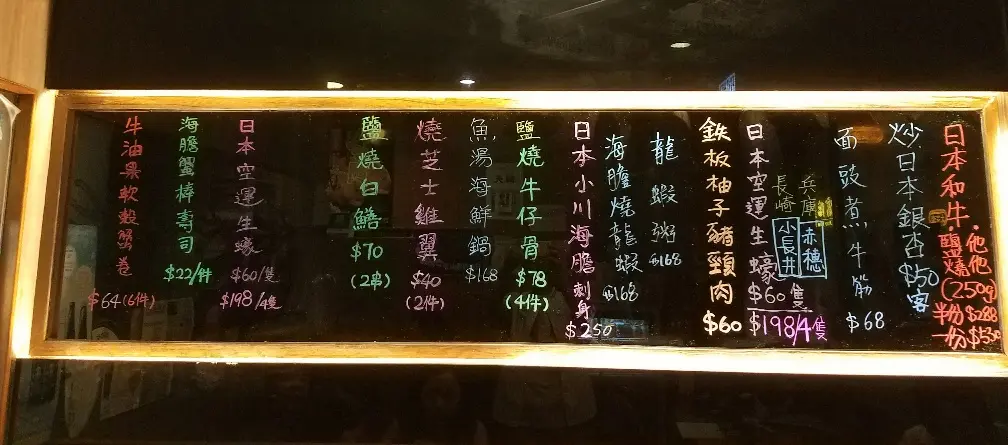 日本和牛
他他
鹽燒
(250g)
半份 $288
一份 $530
炒日本銀杏 $50客
面豉煮牛筋
$68
日本空運生蠔
兵庫
赤穗
長崎
小長井
$60隻
$198/4隻
鉄板柚子豬頸肉
$60
龍蝦粥
$168
海膽燒龍蝦
$168
日本小川海膽刺身
$250
鹽燒牛仔骨
$78
(4件)
魚湯海鮮鍋
$168
燒芝士雞翼
$40
(2件)
鹽燒白鱔
$70
(2串)
日本空運生蠔
$60/隻
$198/4隻
海膽蟹棒壽司
$22/件
牛油果軟殼蟹卷
$64(6件)